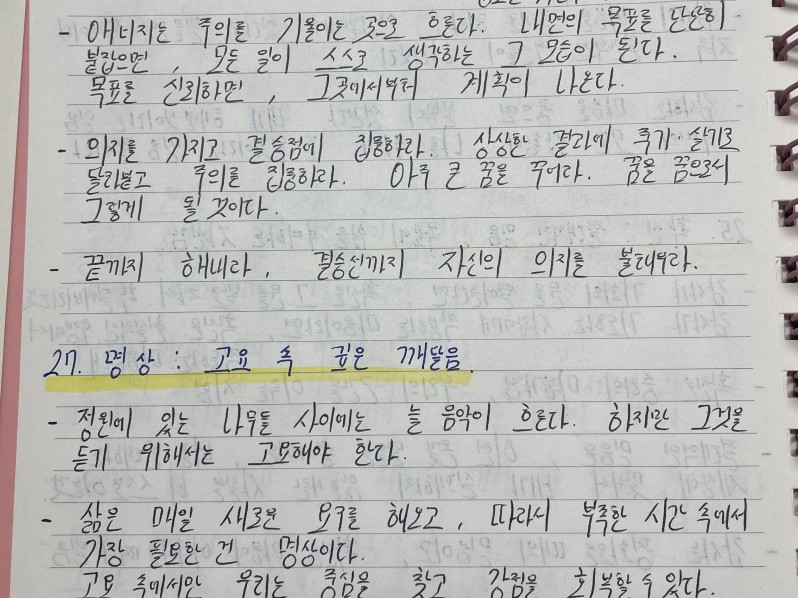 - 애너지는 주의를 기울이는 곳으로 흐른다. 내면의 목표를 단단히
붙잡으면, 모든 일이 스스로 생각하는 그 모습이 된다.
목표를 신뢰하면, 그곳에서부터 계획이 나온다.
- 의지를 가지고 결승점에 집중하라. 상상한 결과에 죽기 살기로
달라붙고 주의를 집중하라. 아주 큰 꿈을 꾸어라. 꿈은 꿈으로서
그렇게 될 것이다.
- 끝까지 해내라, 결승선까지 자신의 의지를 불태우라.
27. 명상 : 고요 속 깊은 깨달음
- 정원에 있는 나무들 사이에는 늘 음악이 흐른다. 하지만 그것을
듣기 위해서는 고요해야 한다.
- 삶은 매일 새로운 요구를 해오고, 따라서 부족한 시간 속에서
가장 필요한 건 명상이다.
고요 속에서만 우리는 중심을 찾고 강점을 회복할 수 있다.